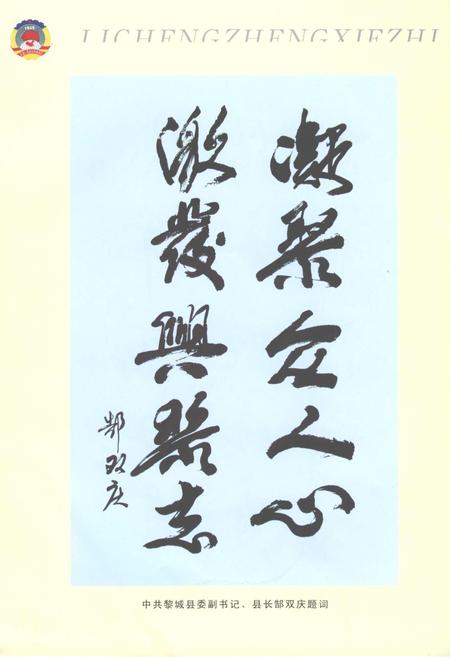 LICHENGZHENGXIEZHI
凝聚众人心
激發興黎志
郜双庆
中共黎城县委副书记、县长郜双庆题词